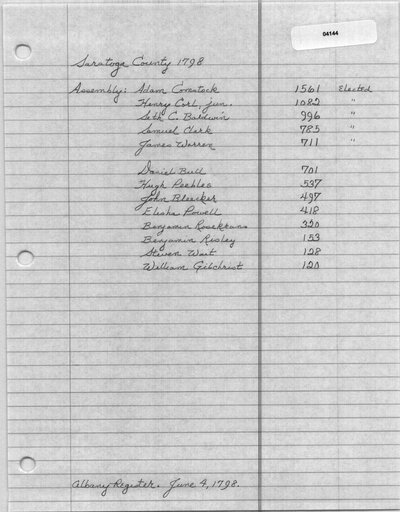 04144
Saratoga County 1798
Assembly: Adam Comstock 1561 Elected
Henry Corl, jun. 1082 "
Seth C. Baldwin 996 "
Samuel Clark 785 "
James Warren 711 "
Daniel Bull 701
Hugh Peebles 537
John Bleecker 497
Elisha Powell 418
Benjamin Rosekrans 320
Benjamin Risley 153
Steven Wait 128
William Gilchrist 120
Albany Register. June 4, 1798.